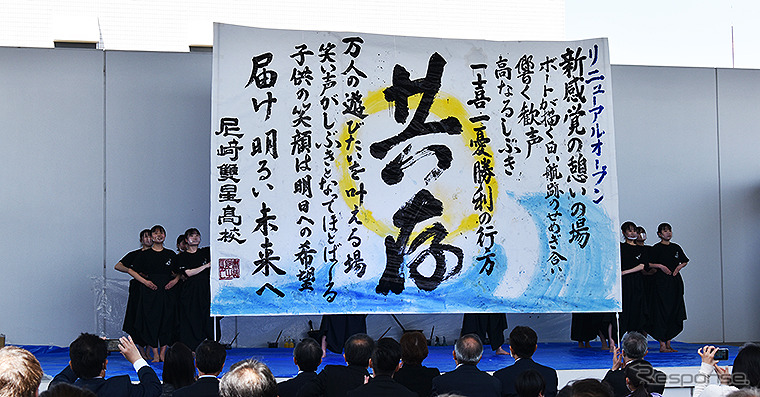 リニューアルオープン
新感覚の憩いの場
ボートが描く白い航跡のせめぎ合い
響く歓声
高なるしぶき
一喜一憂勝利の行方
共存
万人の遊びたいを叶える場
笑い声がしぶきとなってほとばしる
子供の笑顔は明日への希望
届け明るい未来へ
尼崎雙星高校
Response.